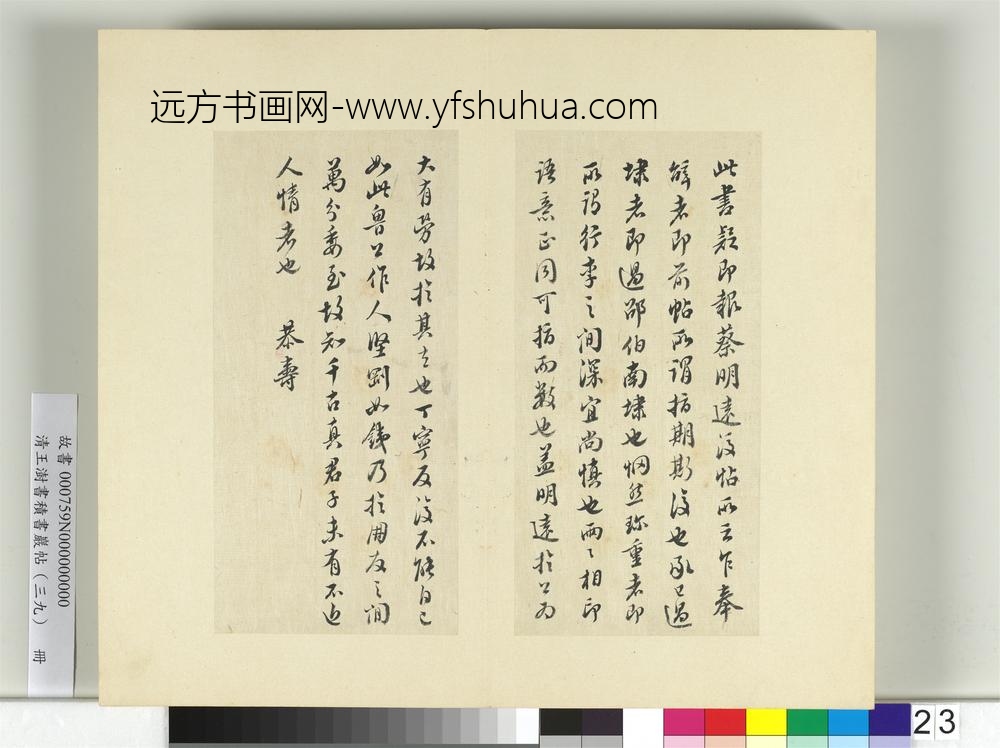 远方书画网-www.yfshuhua.com
此書疑即報蔡明遠後帖所云乍奉
辭者即前帖所謂指期斯復也承已過
埭者即過邵伯南埭也惘然珍重者即
所謂行李之間深宜尚慎也兩兩相印
語意正同可指而數也蓋明遠於公为
大有勞故於其去也丁寧反復不能自已
如此魯公作人堅剛如鐵乃於朋友之間
萬分委至故知千古真君子未有不近
人情者也 恭壽
故書000759N000000000
清王澍書積書巖帖(三九) 冊
23